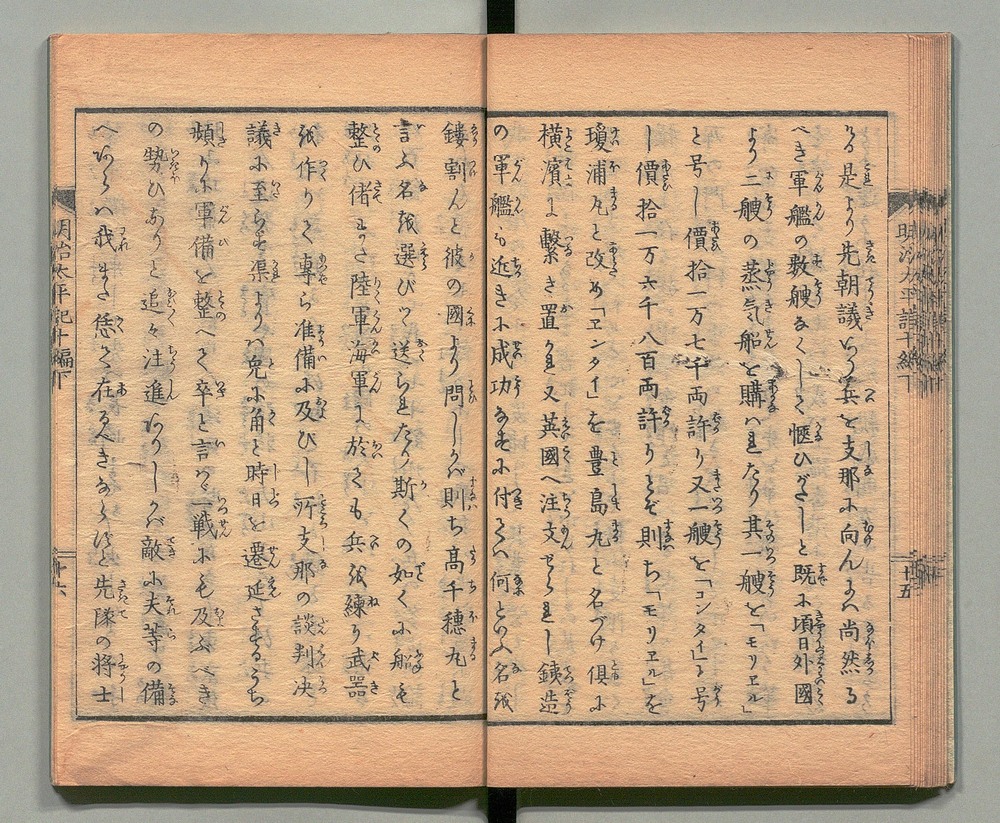 る是より先朝議いよ〳〵兵を支那に向んには尚然る
べき軍艦の数艘なくして愜ひがたしと既に頃日外國
より二艘の蒸気船を購はれたり其一艘を「モリヱル」
と号し價拾一万七千両許り又一艘を「コンタイ」と号
し價拾一万六千八百両許りとぞ則ち「モリヱル」を
瓊浦丸と改め「ヱンタイ」を豊島丸と名づけ倶に
横濱に繋き置かれ又英國へ注文せられし鉄造
の軍艦も近きに成功なすに付ては何といふ名を
鏤割んと彼の國より問しかば則ち髙千穂丸と
言ふ名を選びて送られたり斯くの如くに船も
整ひ偖まさ陸軍海軍に於ても兵を練り武器
を作りて専ら准備に及びし所支那の談判决
議に至らず渠よりは兎に角と時日を遷延さするうち
頻りに軍備を整へて卒と言はゞ一戦にも及ぶべき
の勢ひありと追々注進ありしかば敵に夫等の備
へあらば我また恁て在るべきならずと先隊の将士
明治太平記十編下
十五
明治太平記十編下
十六